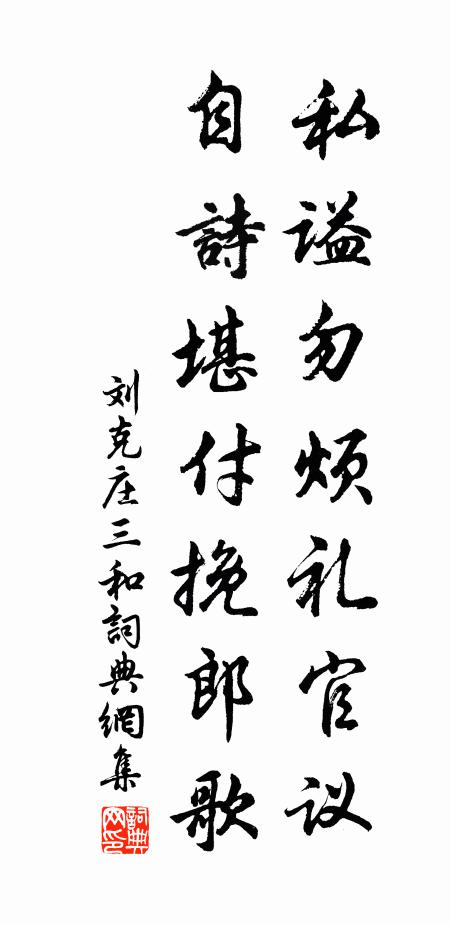 私谥勿烦礼官议
自詩堪付挽郎歌
刘克庄三和詞典網集
詞典
网印